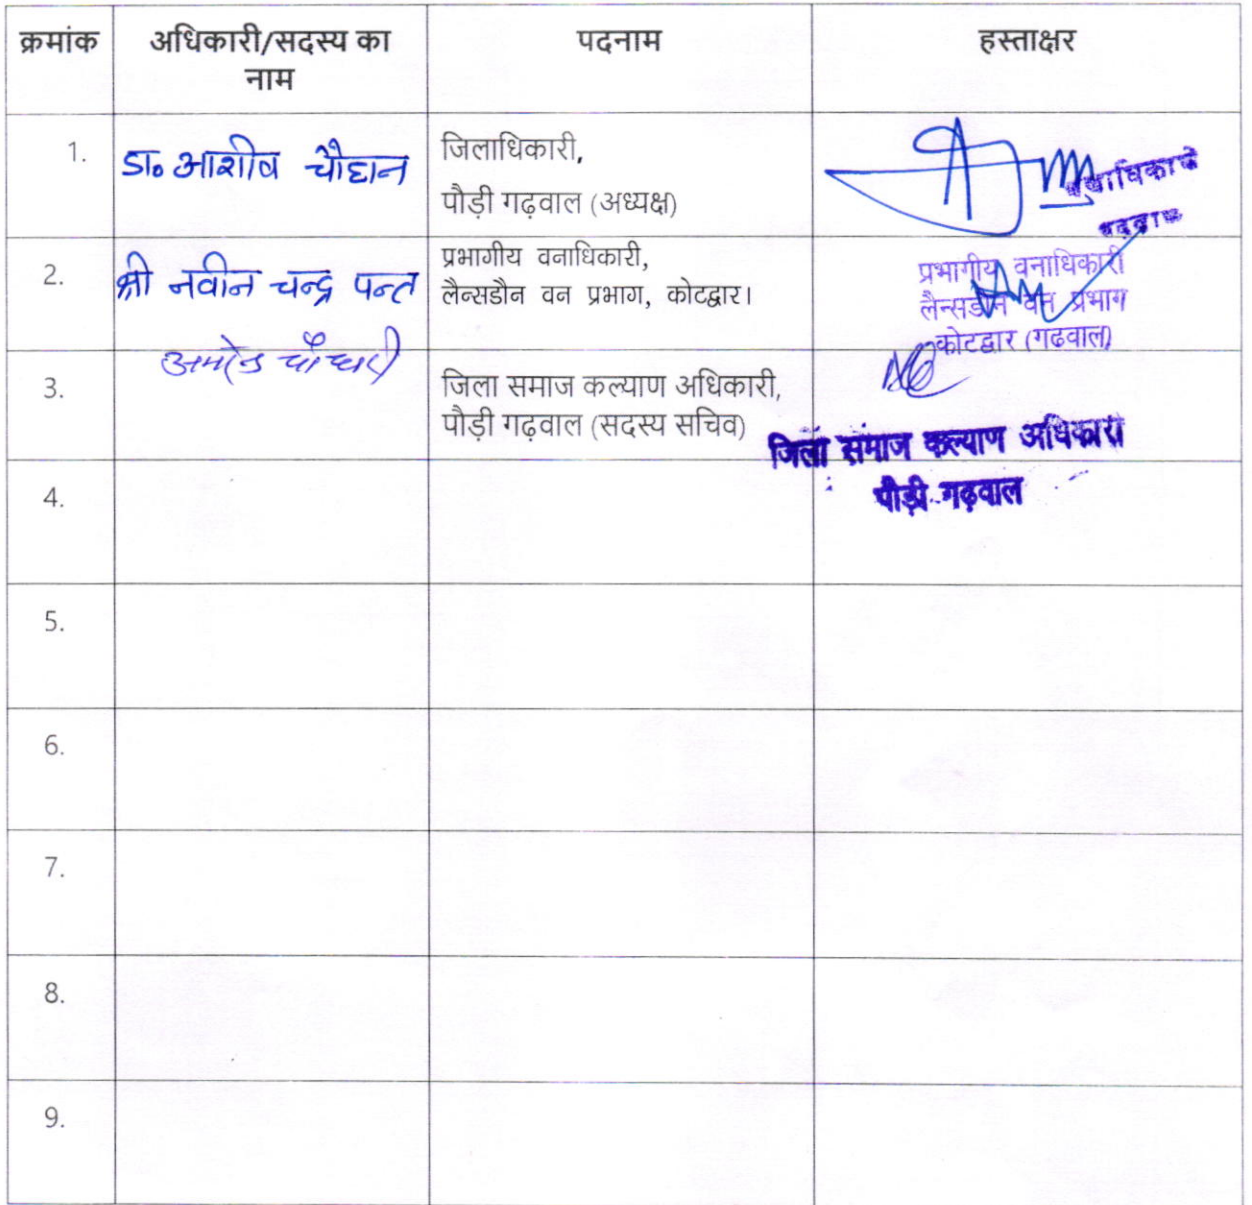 क्रमांक अधिकारी/सदस्य का नाम पदनाम हस्ताक्षर
1. डा० आशीष चौहान जिलाधिकारी,
पौड़ी गढ़वाल (अध्यक्ष)
2. श्री नवीन चन्द्र पन्त प्रभागीय वनाधिकारी,
लैन्सडौन वन प्रभाग, कोटद्वार।
प्रभागीय वनाधिकारी
लैन्सडौन वन प्रभाग
कोटद्वार (गढवाल)
3. चौधरी जिला समाज कल्याण अधिकारी,
पौड़ी गढ़वाल (सदस्य सचिव)
जिला समाज कल्याण अधिकारी
पौड़ी गढ़वाल
4.
5.
6.
7.
8.
9.